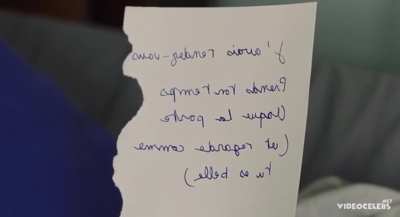 J'avais rendez-vous
Prends ton temps
Claque la porte
(et regarde comme
tu es belle)
VIDEOCELEBS.NET